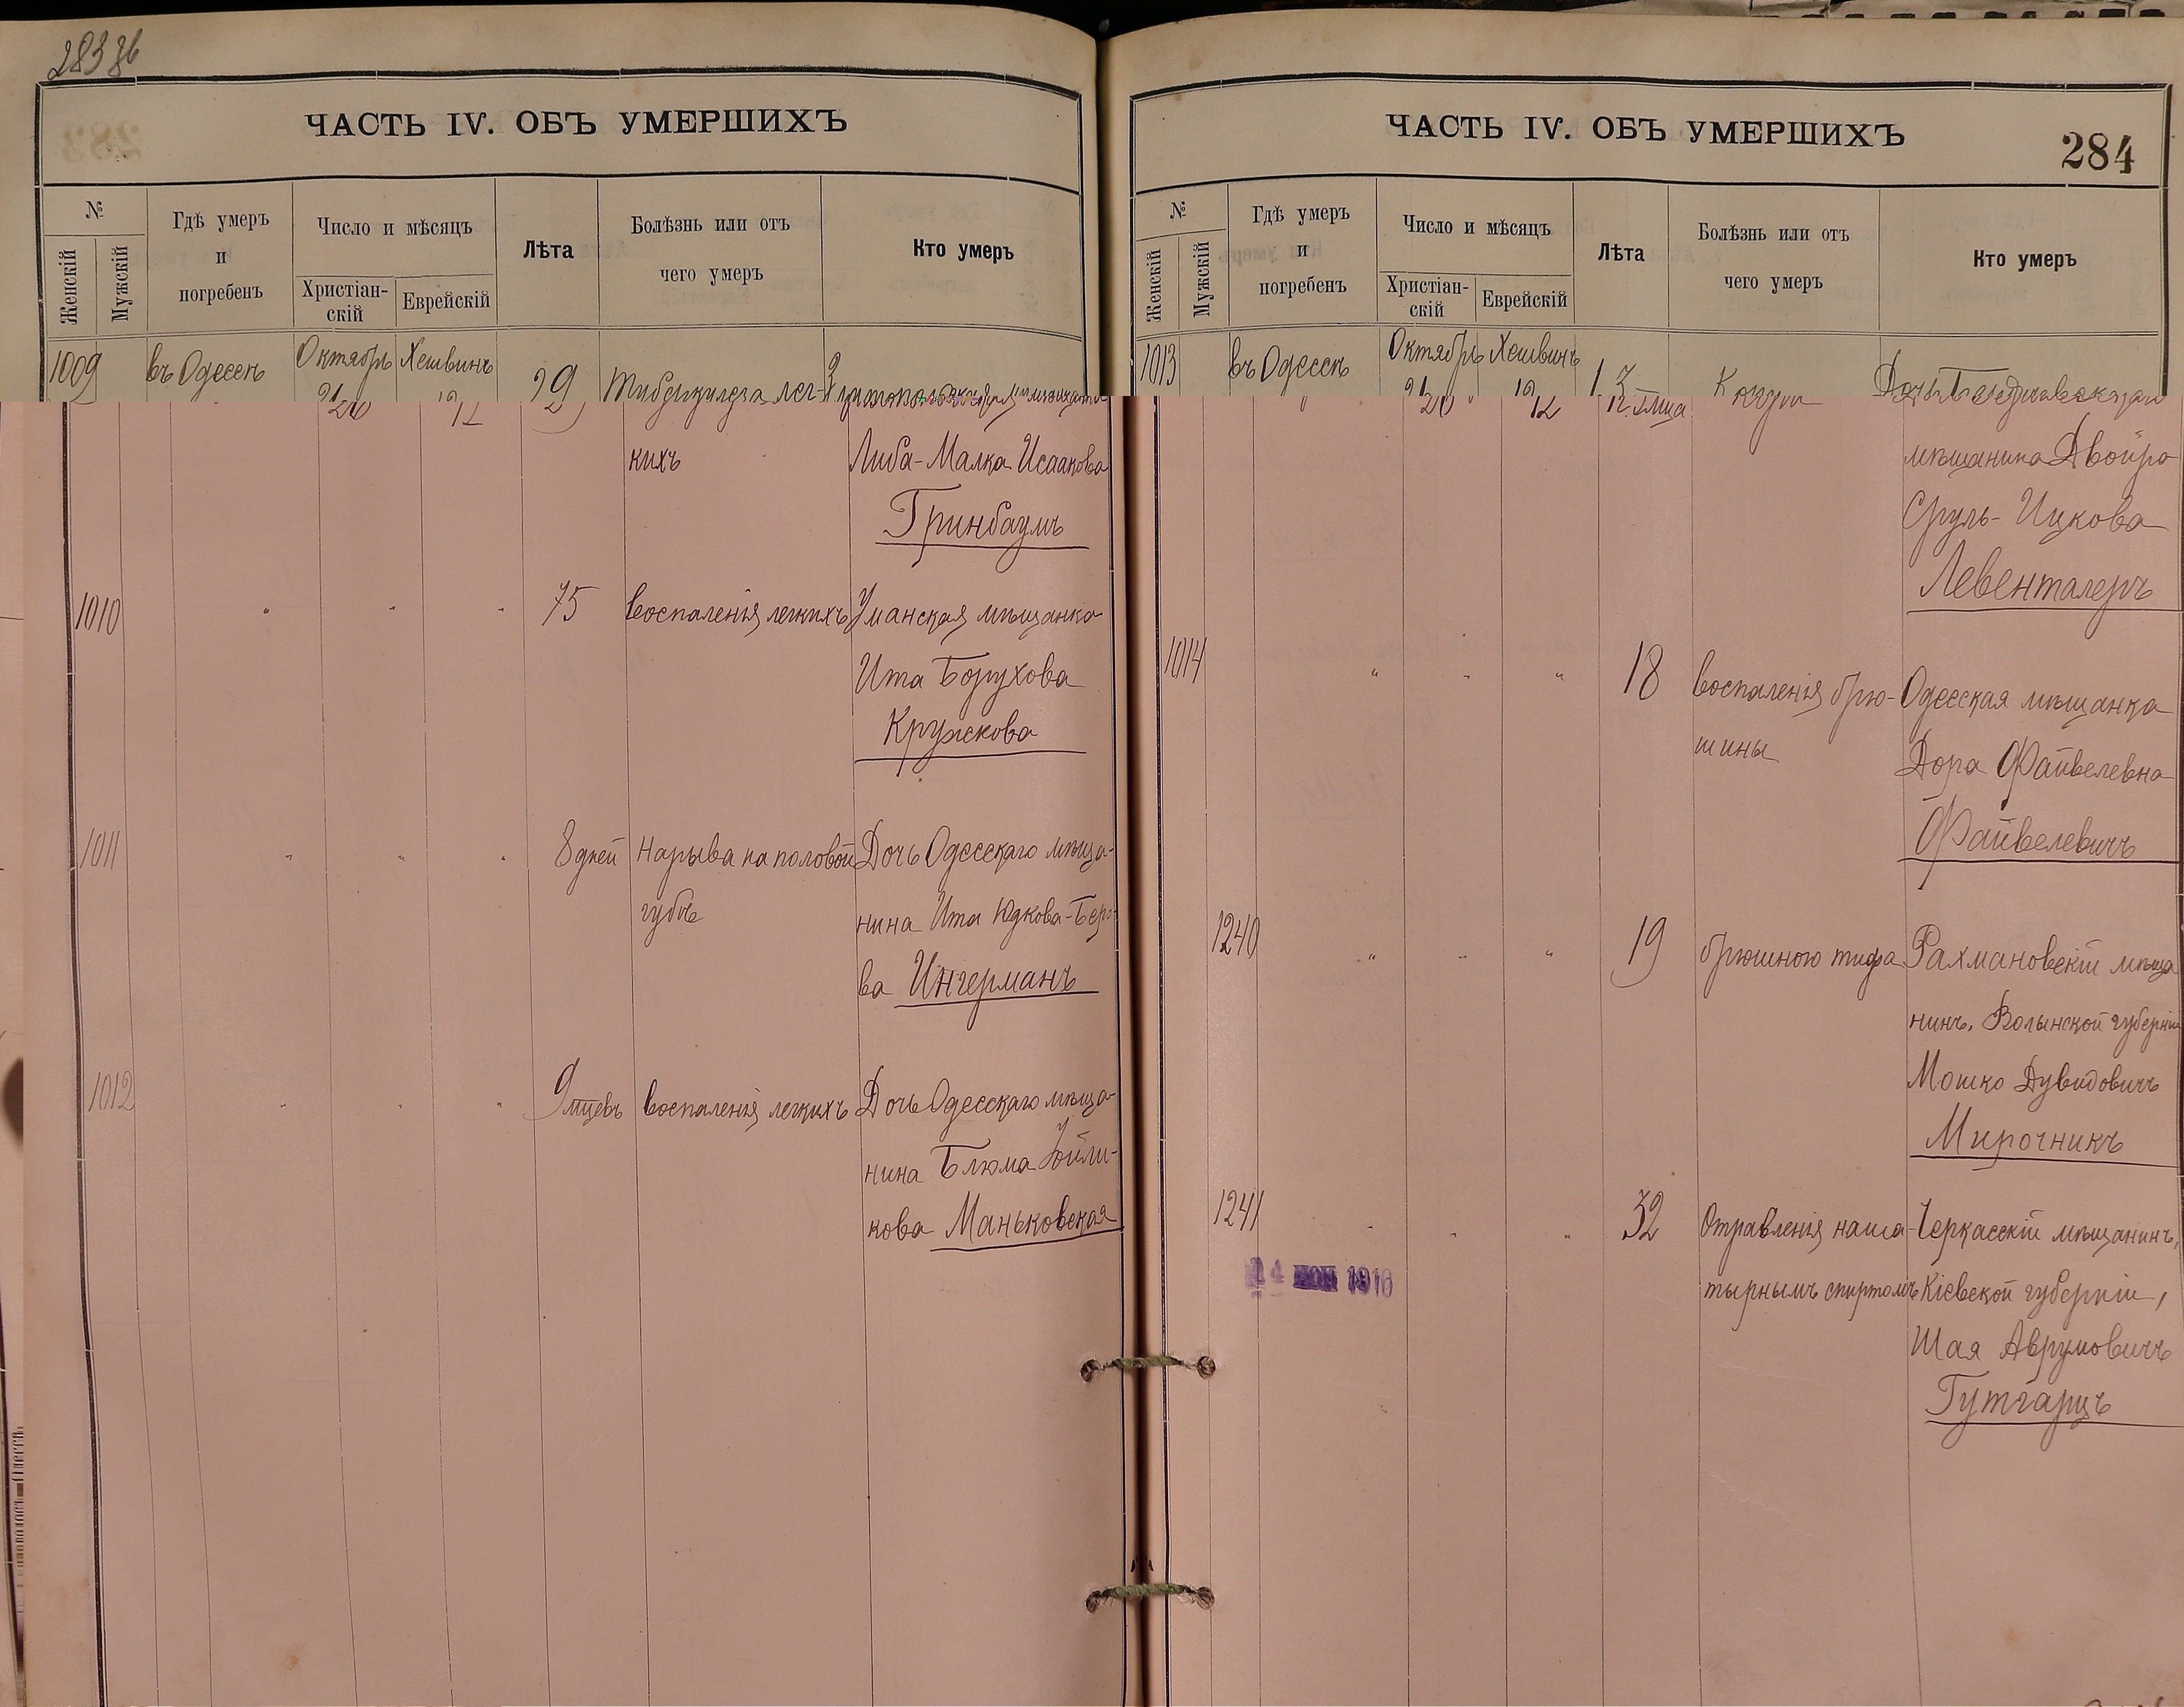 283 об
ЧАСТЬ IV. ОБЪ УМЕРШИХЪ
№
Женскій
Мужскій
Гдѣ умеръ
и
погребенъ
Число и мѣсяцъ
Христіан-
скій
Еврейскій
Лѣта
Болѣзнь или отъ
чего умеръ
Кто умеръ
1009 въ Одессѣ Октябрь Хешвинъ 29
кихъ Либа-Малка Исаакова
Гринбаумъ
1010 " " " 75 воспаленія легкихъ Уманская мѣщанка
Ита Борухова
Кружкова
1011 " " " 8 дней Нарыва на половой Дочь Одесскаго мѣща-
губѣ нина Ита Юдкова-Беро-
ва Ингерманъ
1012 " " " 9 мцевъ воспаленія легкихъ Дочь Одесскаго мѣща-
нина Блюма
кова Маньковская
ЧАСТЬ IV. ОБЪ УМЕРШИХЪ
284
№
Женскій
Мужскій
Гдѣ умеръ
и
погребенъ
Число и мѣсяцъ
Христіан-
скій
Еврейскій
Лѣта
Болѣзнь или отъ
чего умеръ
Кто умеръ
1013 въ Одессѣ Октябрь Хешвинъ
мѣщанина Двойра
Сруль-Ицкова
Левенталеръ
1014 " " " 18 воспаленія брю- Одесская мѣщанка
шины Дора Файвелевна
Файвелевичъ
1240 " " " 19 брюшного тифа Рахмановскій мѣща
нинъ, Волынской губерніи
Мошко Дувидовичъ
Мирочникъ
1241 " " " 32 Отравленія наша- Черкасскій мѣщанинъ,
тырнымъ спиртомъ Кіевской губерніи,
Шая Аврумовичъ
Гутгарцъ